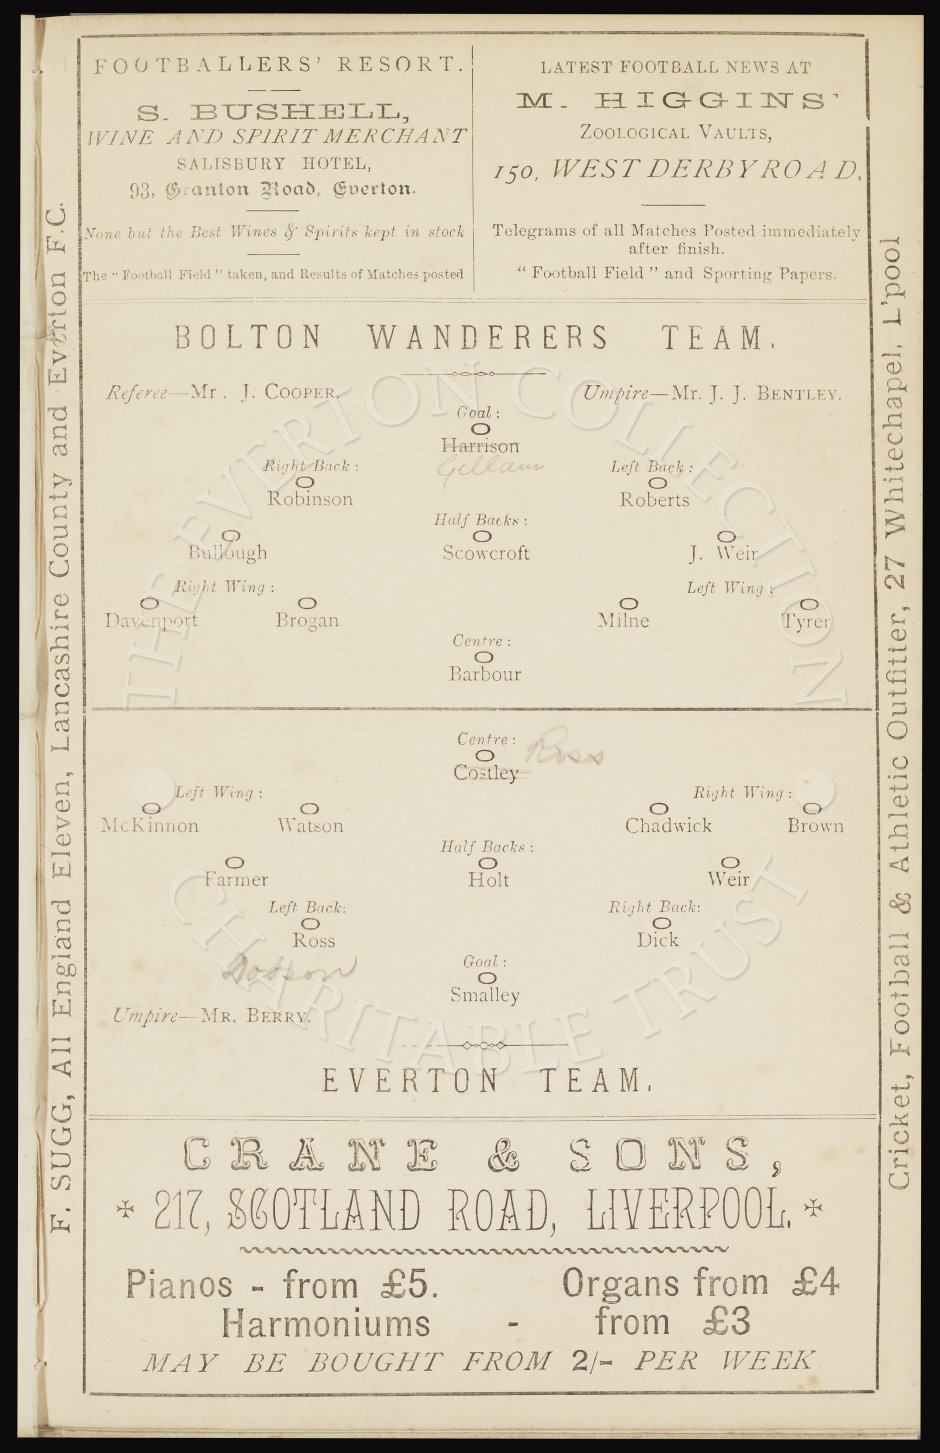 FOOTBALLERS' RESORT.
S. BUSHELL,
WINE AND SPIRIT MERCHANT
SALISBURY HOTEL,
93, Granton Road, Everton.
None but the Best Wines & Spirits kept in stock
The "Football Field" taken, and Results of Matches posted
LATEST FOOTBALL NEWS AT
M. HIGGINS'
ZOOLOGICAL VAULTS,
150, WEST DERBY ROAD,
Telegrams of all Matches Posted immediately
after finish.
"Football Field" and Sporting Papers.
F. SUGG, All England Eleven, Lancashire County and Everton F.C.
BOLTON WANDERERS TEAM.
Referee—Mr. J. COOPER.
Umpire—Mr. J. J. BENTLEY.
Goal:
Harrison
Gillam
Right Back:
Left Back:
Robinson
Roberts
Half Backs:
Bullough
Scowcroft
J. Weir
Right Wing:
Left Wing:
Davenport
Brogan
Milne
Tyrer
Centre:
Barbour
Centre:
Ross
Costley
Left Wing:
Right Wing:
McKinnon
Watson
Chadwick
Brown
Half Backs:
Farmer
Holt
Weir
Left Back:
Right Back:
Ross
Dick
Dobson
Goal:
Smalley
Umpire—MR. BERRY.
EVERTON TEAM.
Cricket, Football & Athletic Outfitter, 27 Whitechapel, L'pool
CRANE & SONS,
217, SCOTLAND ROAD, LIVERPOOL.
Pianos - from £5. Organs from £4
Harmoniums - from £3
MAY BE BOUGHT FROM 2/- PER WEEK.
THE EVERTON COLLECTION
CHARITABLE TRUST